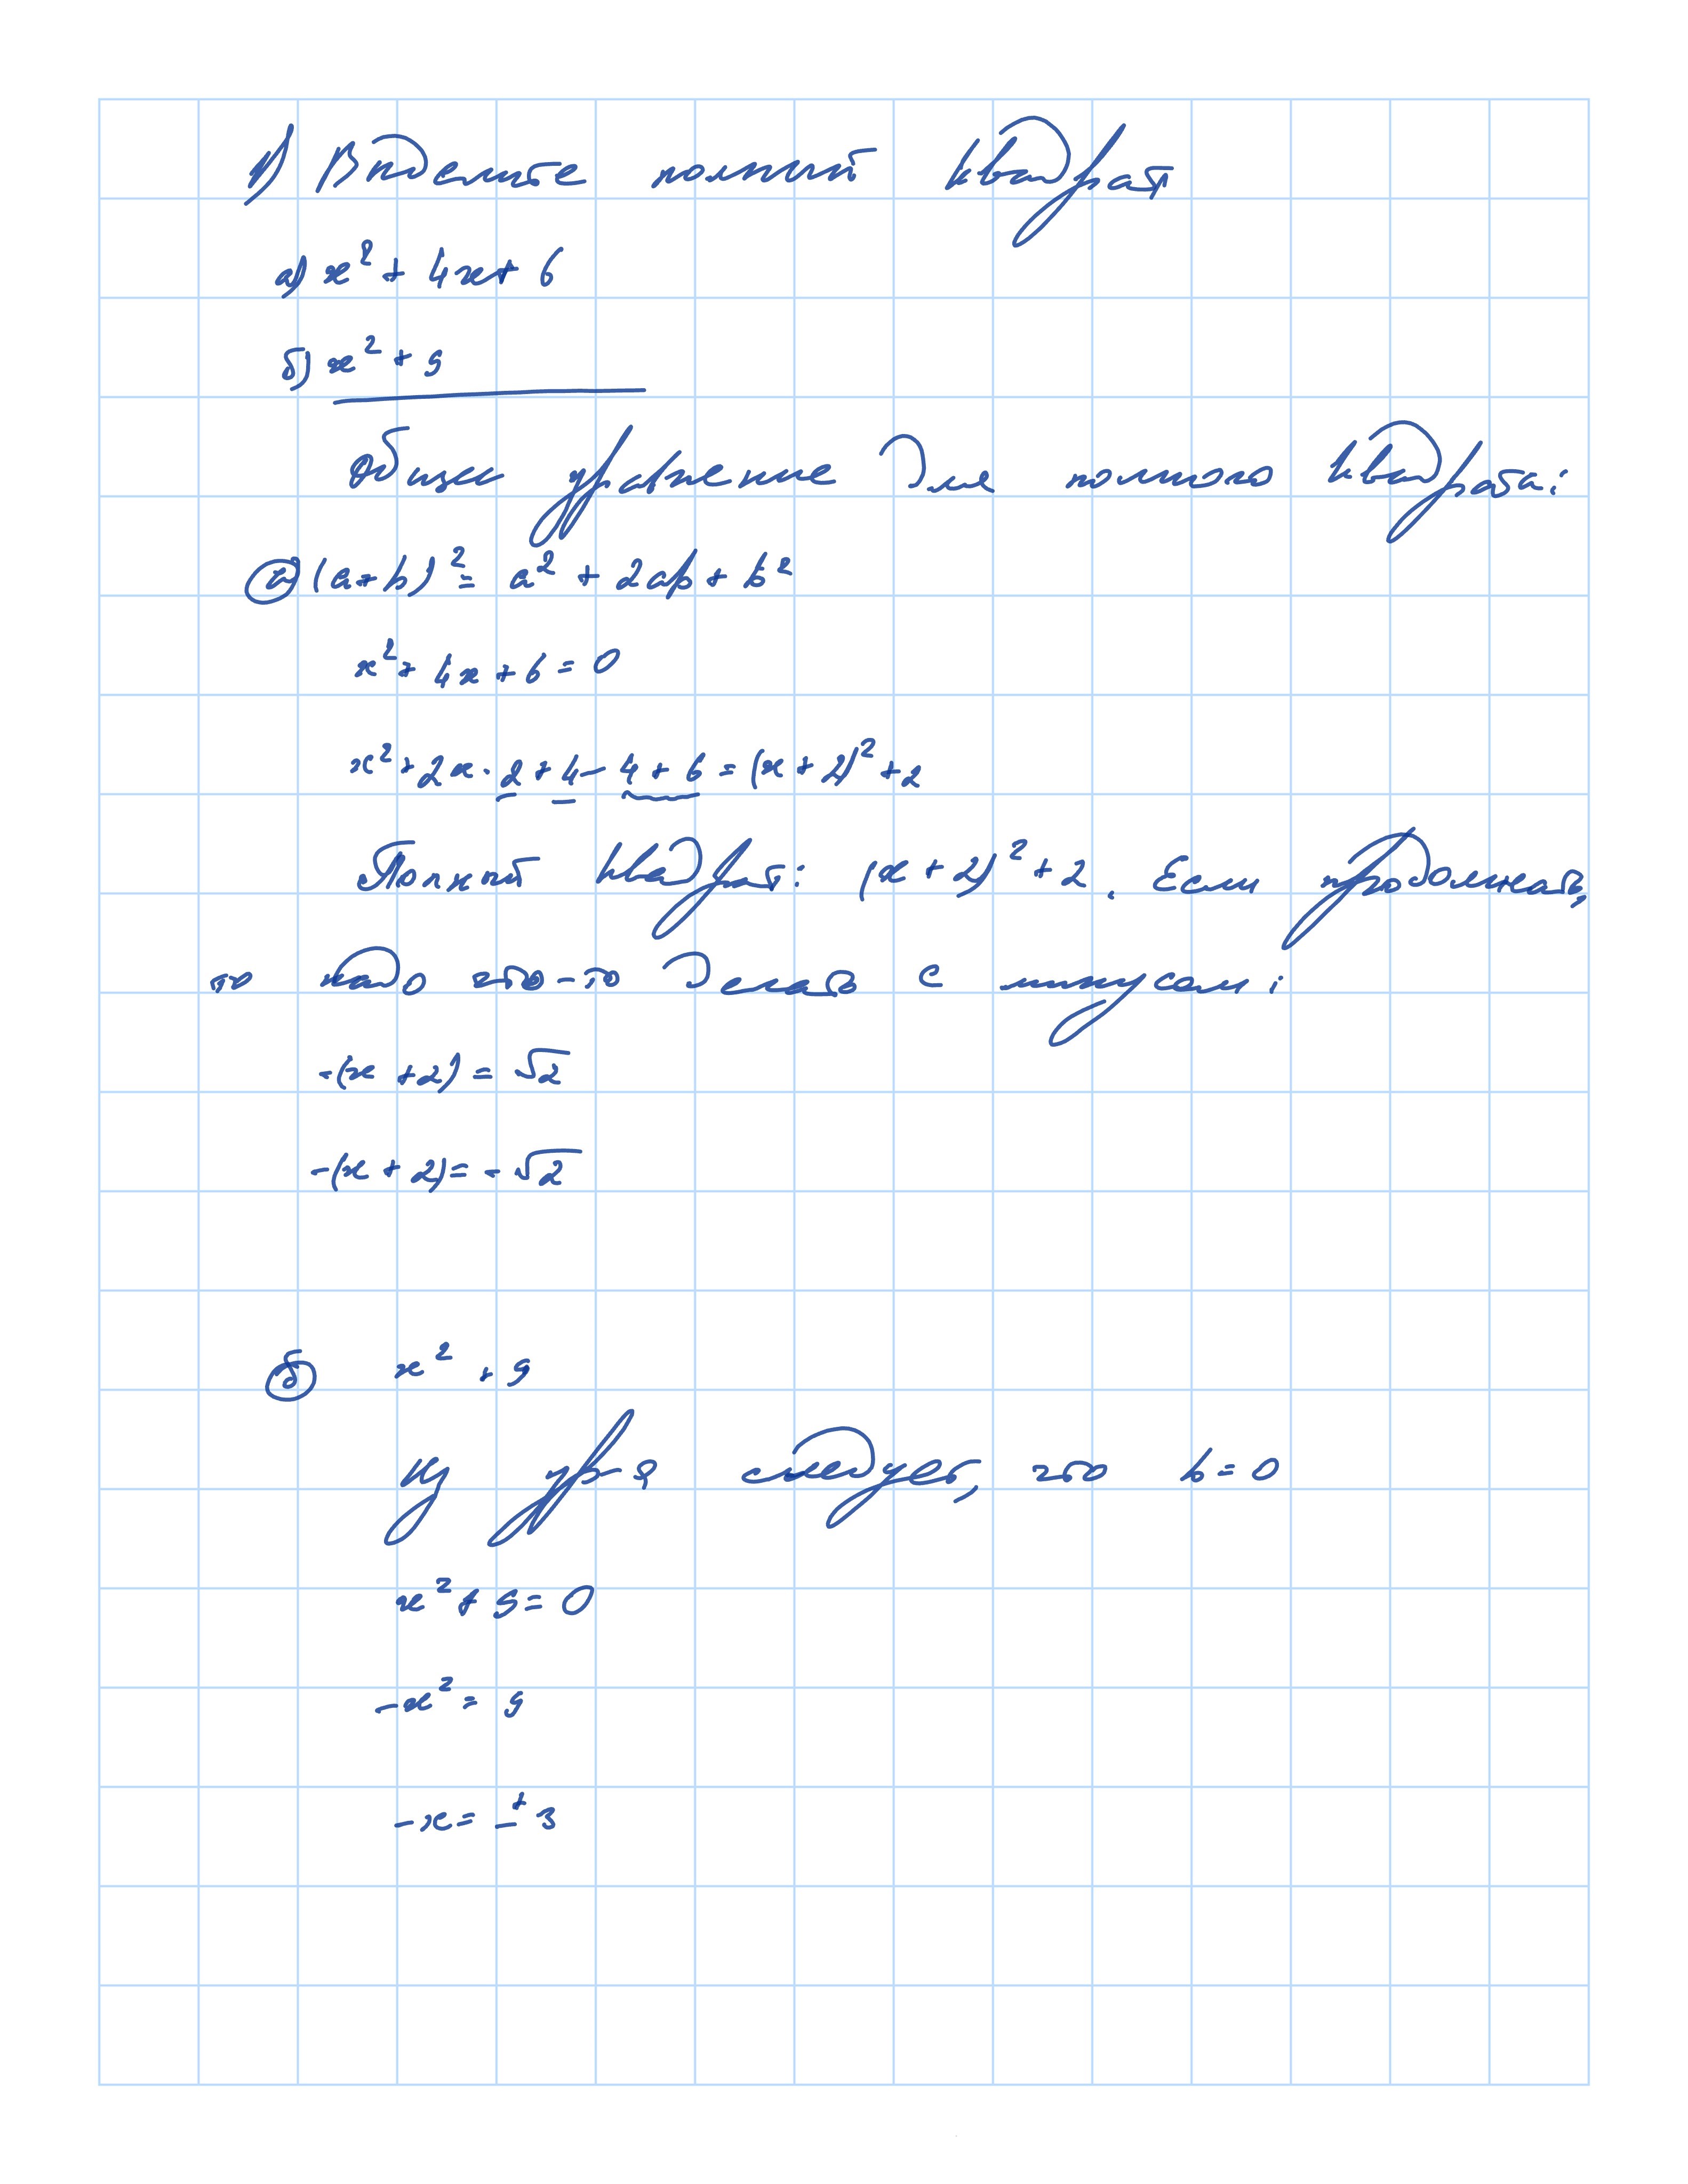 1) Выделите полный квадрат
а) x² + 4x + 6
б) x² + 9
Общее уравнение для полного квадрата:
а) (a + b)² = a² + 2ab + b²
x² + 4x + 6 = 0
x² + 2x · 2 + 4 - 4 + 6 = (x + 2)² + 2
Полный квадрат: (x + 2)² + 2. Если продолжать,
то надо что-то делать с минусом:
-(x + 2) = √2
-(x + 2) = -√2
б) x² + 9
Из ур-я следует, что b = 0
x² + 9 = 0
-x² = 9
-x = ±3